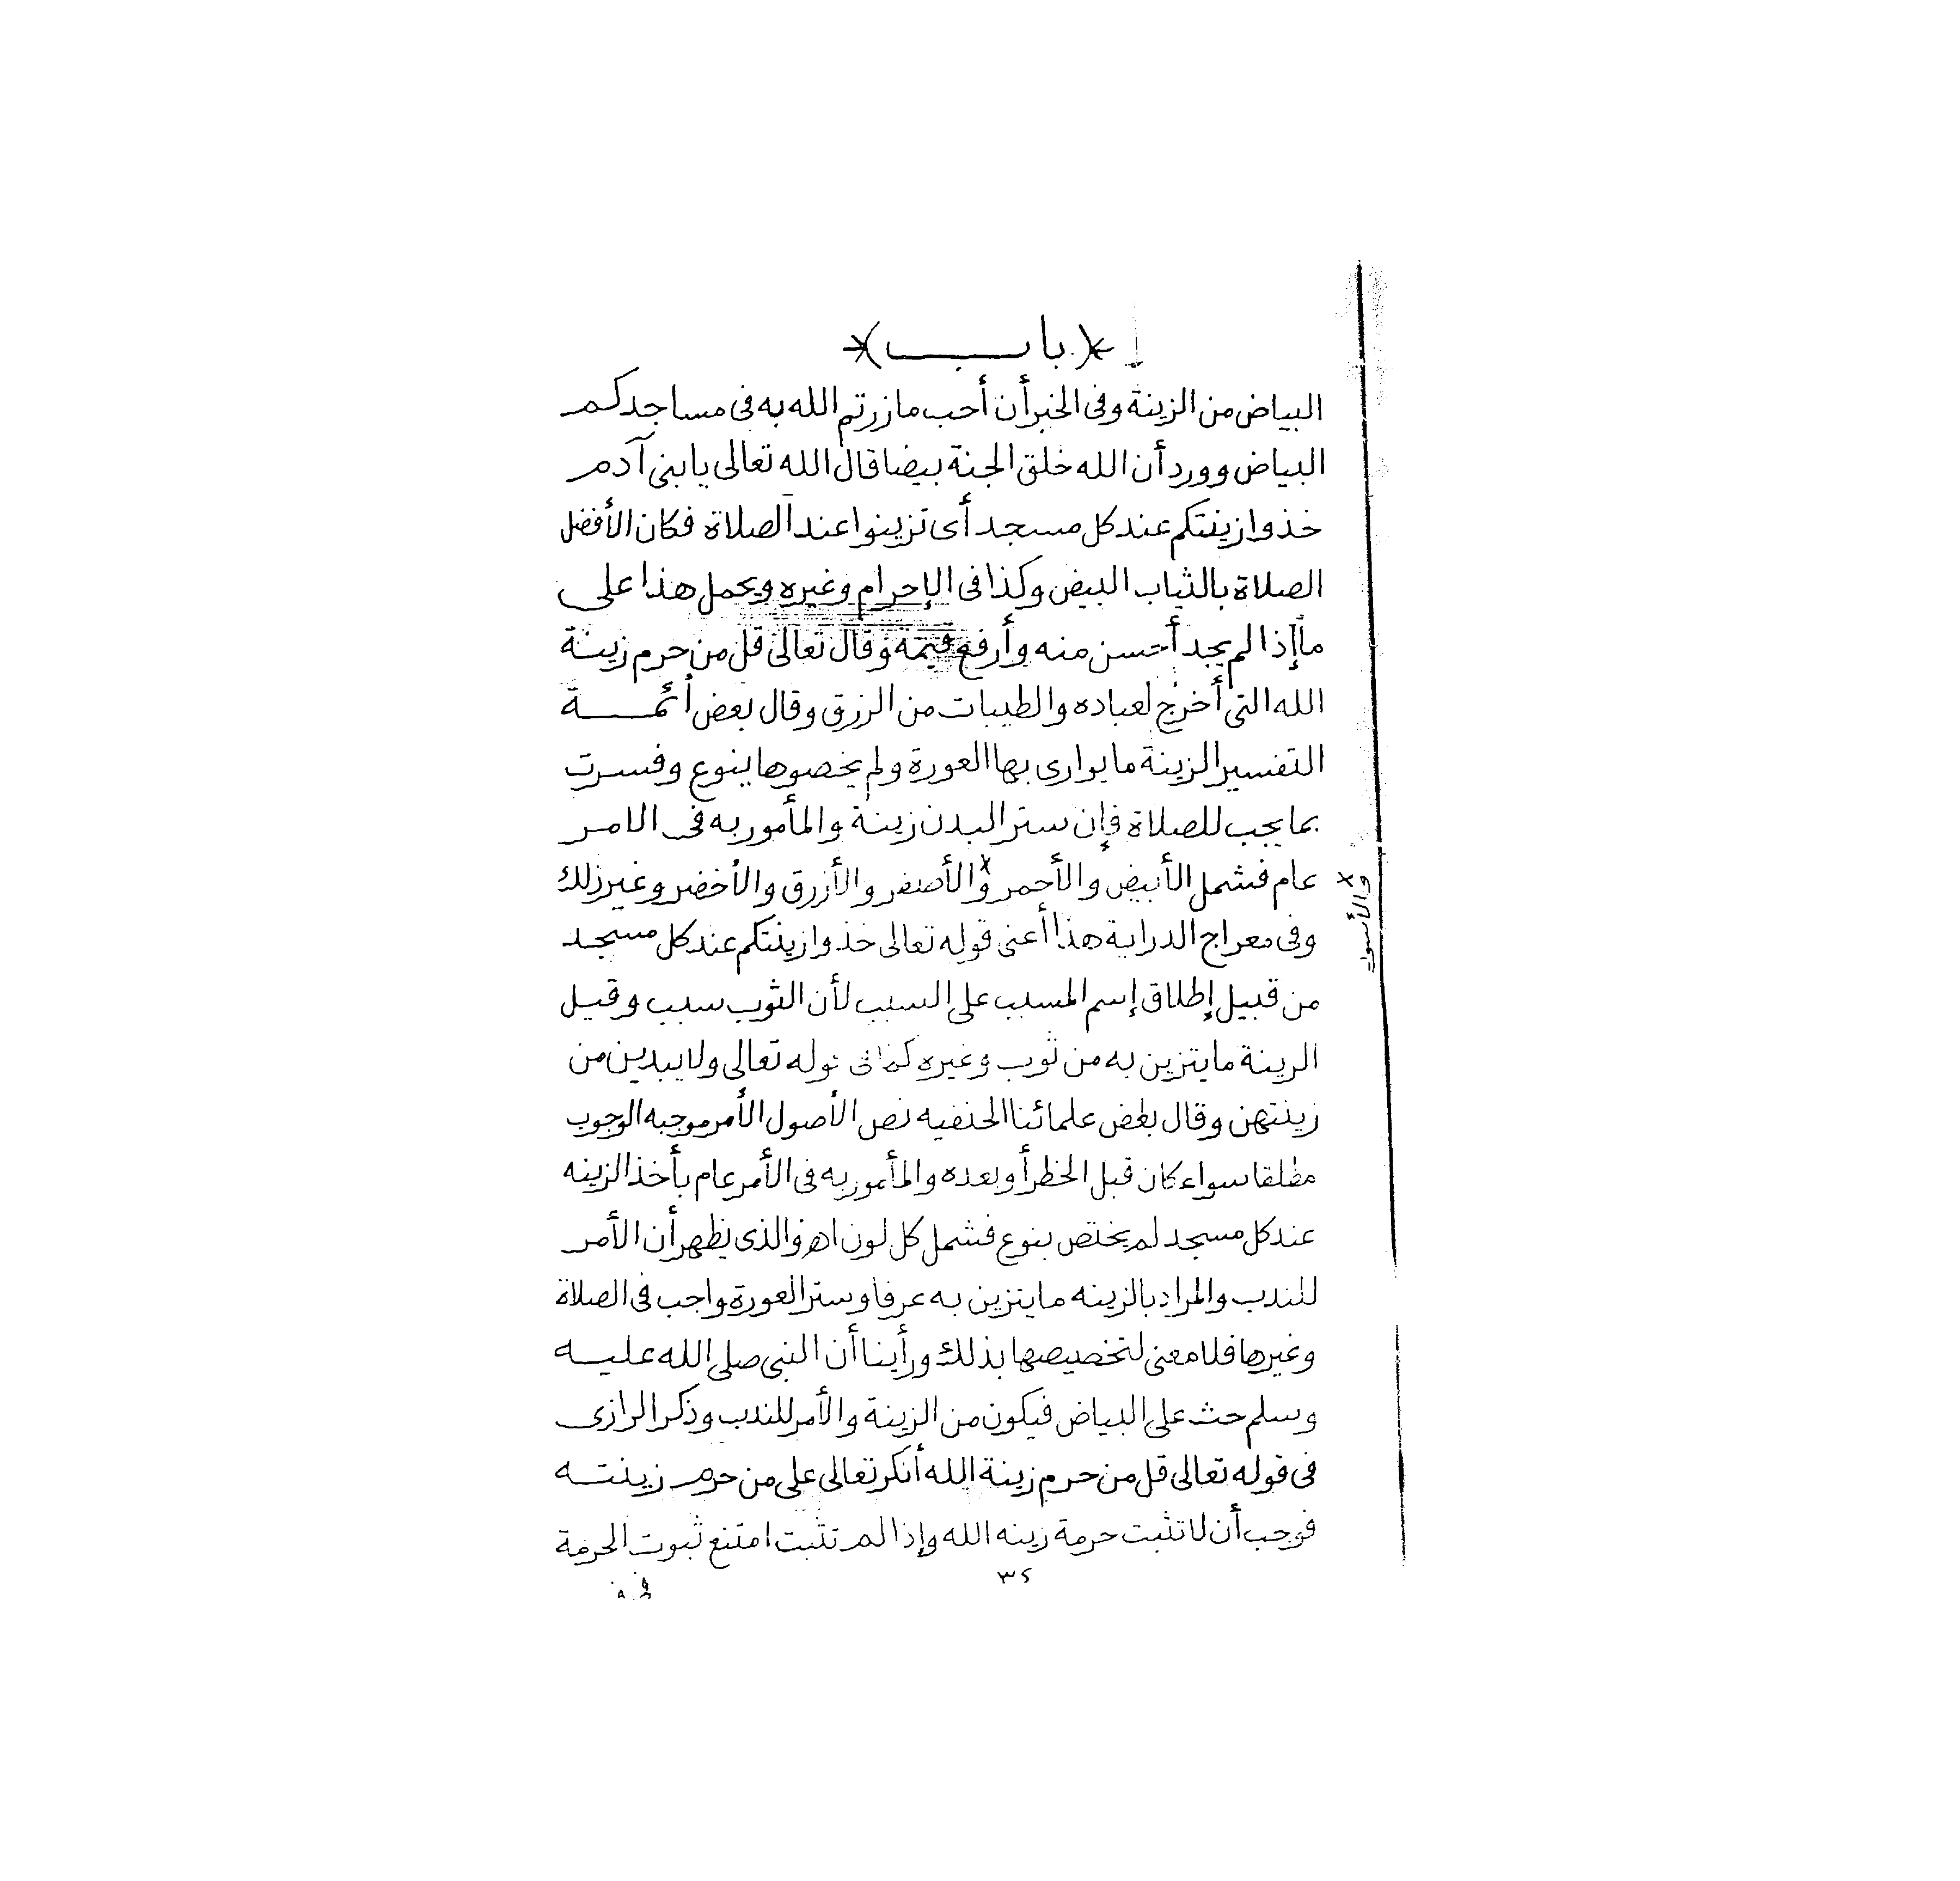 *(باب)*
البياض من الزينة وفى الخبر أن أحب ما زرتم الله به فى مساجدكم
البياض وورد أن الله خلق الجنة بيضا قال الله تعالى يا بنى آدم
خذوا زينتكم عند كل مسجد أى تزينوا عند الصلاة فكان الأفضل
الصلاة بالثياب البيض وكذا فى الإحرام وغيره ويحمل هذا على
ما إذا لم يجد أحسن منه وأرفع قيمة وقال تعالى قل من حرم زينة
الله التى أخرج لعباده والطيبات من الرزق وقال بعض أئمة
التفسير الزينة ما يوارى بها العورة ولم يخصوها بنوع وفسرت
بما يجب للصلاة فإن ستر البدن زينة والمأمور به فى الامر
عام فشمل الأبيض والأحمر × والأصفر والأزرق والأخضر وغير ذلك
× والأسود
وفى معراج الدراية هذا أعنى قوله تعالى خذوا زينتكم عند كل مسجد
من قبيل إطلاق إسم المسبب على السبب لأن الثوب سبب وقيل
الزينة ما يتزين به من ثوب وغيره كما فى قوله تعالى ولا يبدين من
زينتهن وقال بعض علمائنا الحنفيه نص الأصول الأمر موجبه الوجوب
مطلقا سواء كان قبل الحظر أو بعده والمأمور به فى الأمر عام بأخذ الزينه
عند كل مسجد لم يختص بنوع فشمل كل لون اهـ والذى يظهر أن الأمر
للندب والمراد بالزينه ما يتزين به عرفا وستر العورة واجب فى الصلاة
وغيرها فلا معنى لتخصيصها بذلك ورأينا أن النبى صلى الله عليه
وسلم حث على البياض فيكون من الزينة والأمر للندب وذكر الرازى
فى قوله تعالى قل من حرم زينة الله أنكر تعالى على من حرم زينته
فوجب أن لا تثبت حرمة زينه الله وإذا لم تثبت امتنع ثبوت الحرمة
٣٢